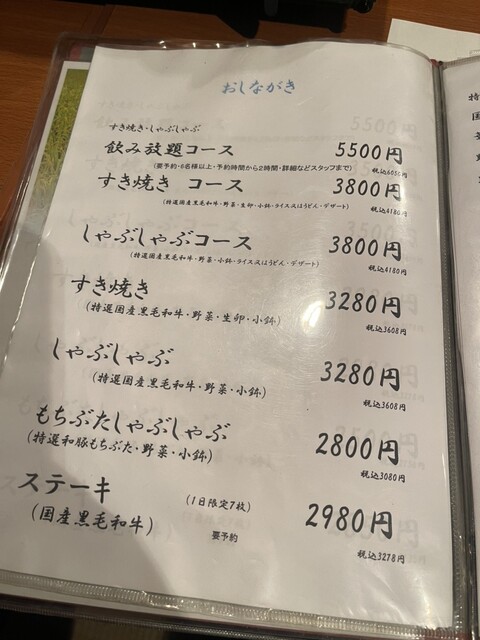 おしながき
すき焼き・しゃぶしゃぶ
飲み放題コース 5500円
(要予約・6名様以上・予約時間から2時間・詳細などスタッフまで) 税込6050円
すき焼き コース 3800円
(特選国産黒毛和牛・野菜・生卵・小鉢・ライス又はうどん・デザート) 税込4180円
しゃぶしゃぶコース 3800円
(特選国産黒毛和牛・野菜・小鉢・ライス又はうどん・デザート) 税込4180円
すき焼き 3280円
(特選国産黒毛和牛・野菜・生卵・小鉢) 税込3608円
しゃぶしゃぶ 3280円
(特選国産黒毛和牛・野菜・小鉢) 税込3608円
もちぶたしゃぶしゃぶ 2800円
(特選和豚もちぶた・野菜・小鉢) 税込3080円
ステーキ (1日限定7枚) 2980円
(国産黒毛和牛) 要予約 税込3278円